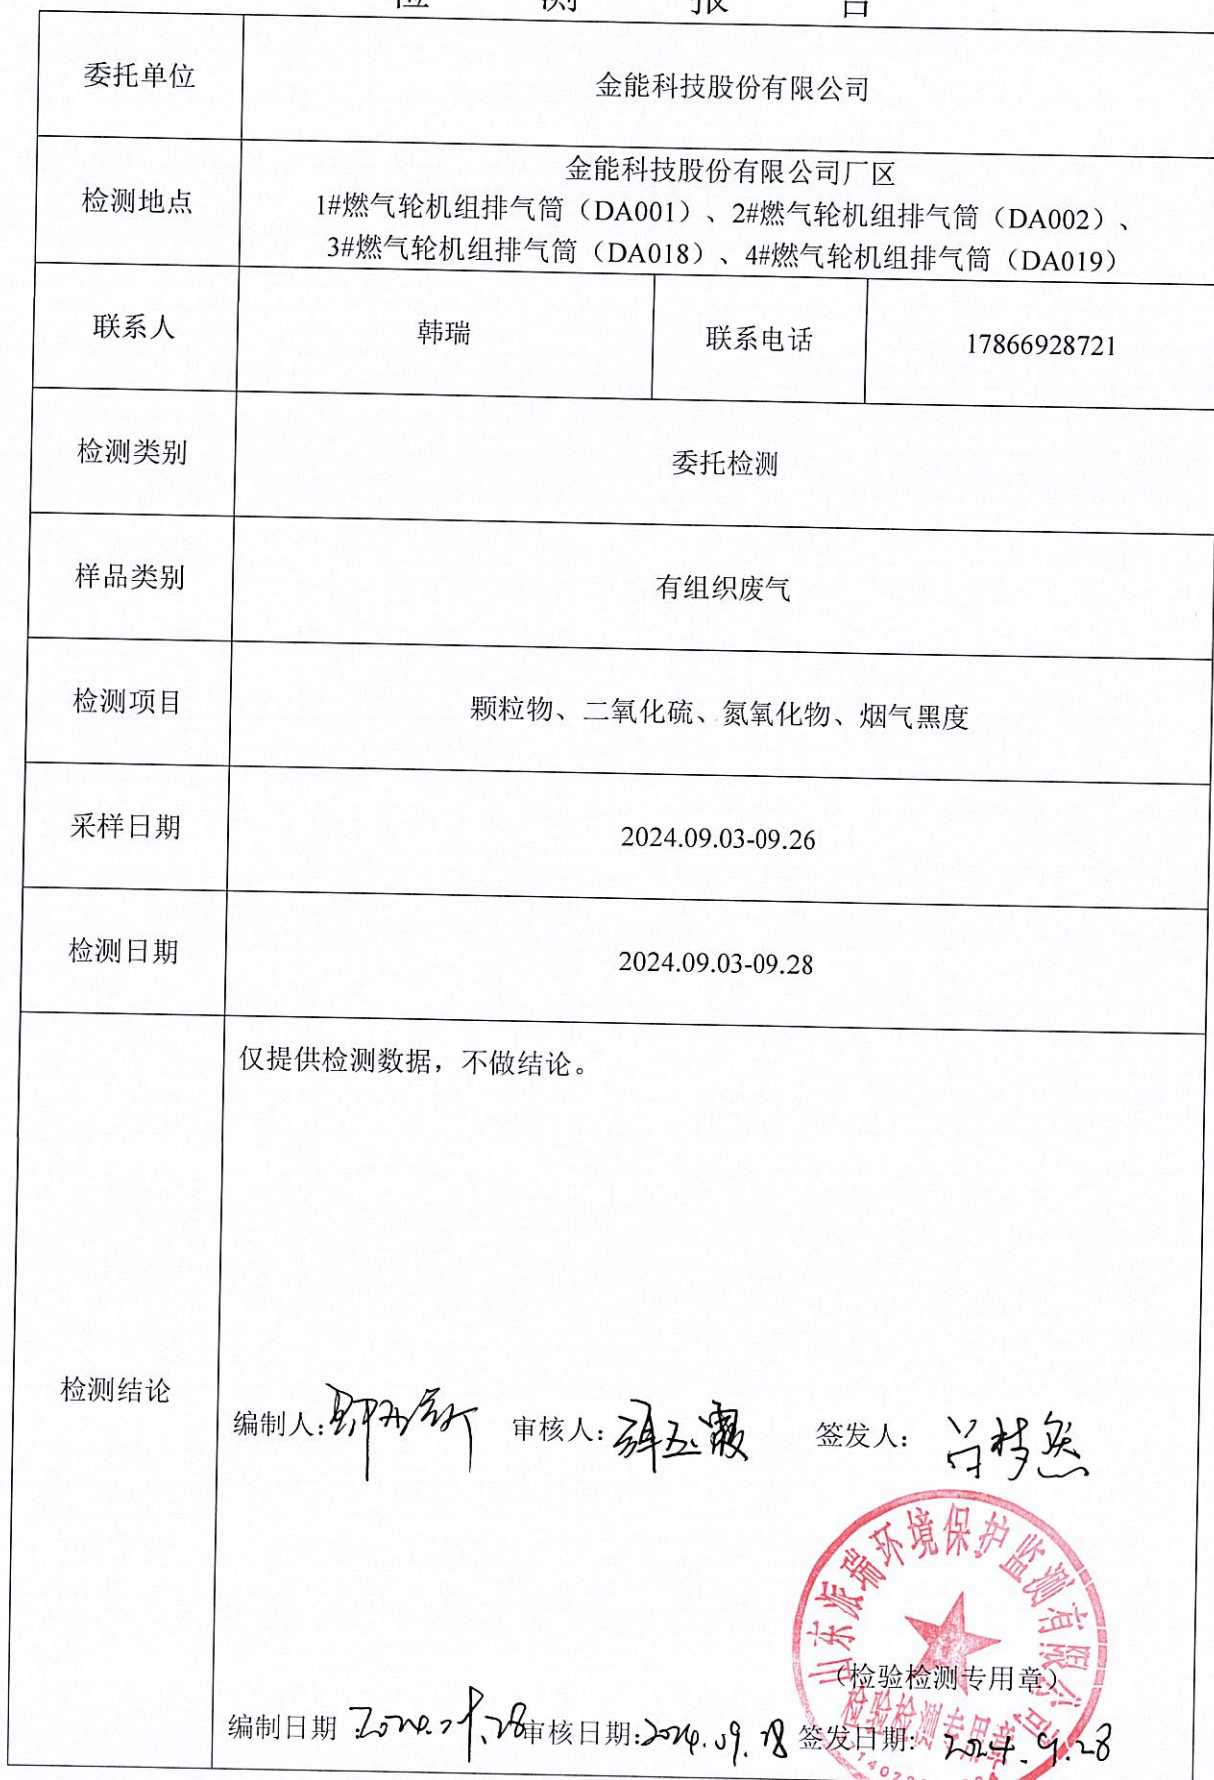 检测报告
委托单位
金能科技股份有限公司
检测地点
金能科技股份有限公司厂区
1#燃气轮机组排气筒（DA001）、2#燃气轮机组排气筒（DA002）、
3#燃气轮机组排气筒（DA018）、4#燃气轮机组排气筒（DA019）
联系人
韩瑞
联系电话
17866928721
检测类别
委托检测
样品类别
有组织废气
检测项目
颗粒物、二氧化硫、氮氧化物、烟气黑度
采样日期
2024.09.03-09.26
检测日期
2024.09.03-09.28
检测结论
仅提供检测数据，不做结论。
编制人:
审核人:
签发人:
山东派瑞环境保护监测有限公司
（检验检测专用章）
检验检测专用章
编制日期
审核日期:2024.09.28
签发日期: 2024.9.28